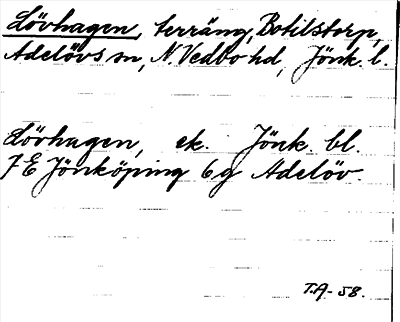 Lövhagen, terräng, Botilstorp,
Adelövs sn, N. Vedbo hd, Jönk. l.
Lövhagen, ek. Jönk. bl.
7E Jönköping 6g Adelöv.
T.A-58.